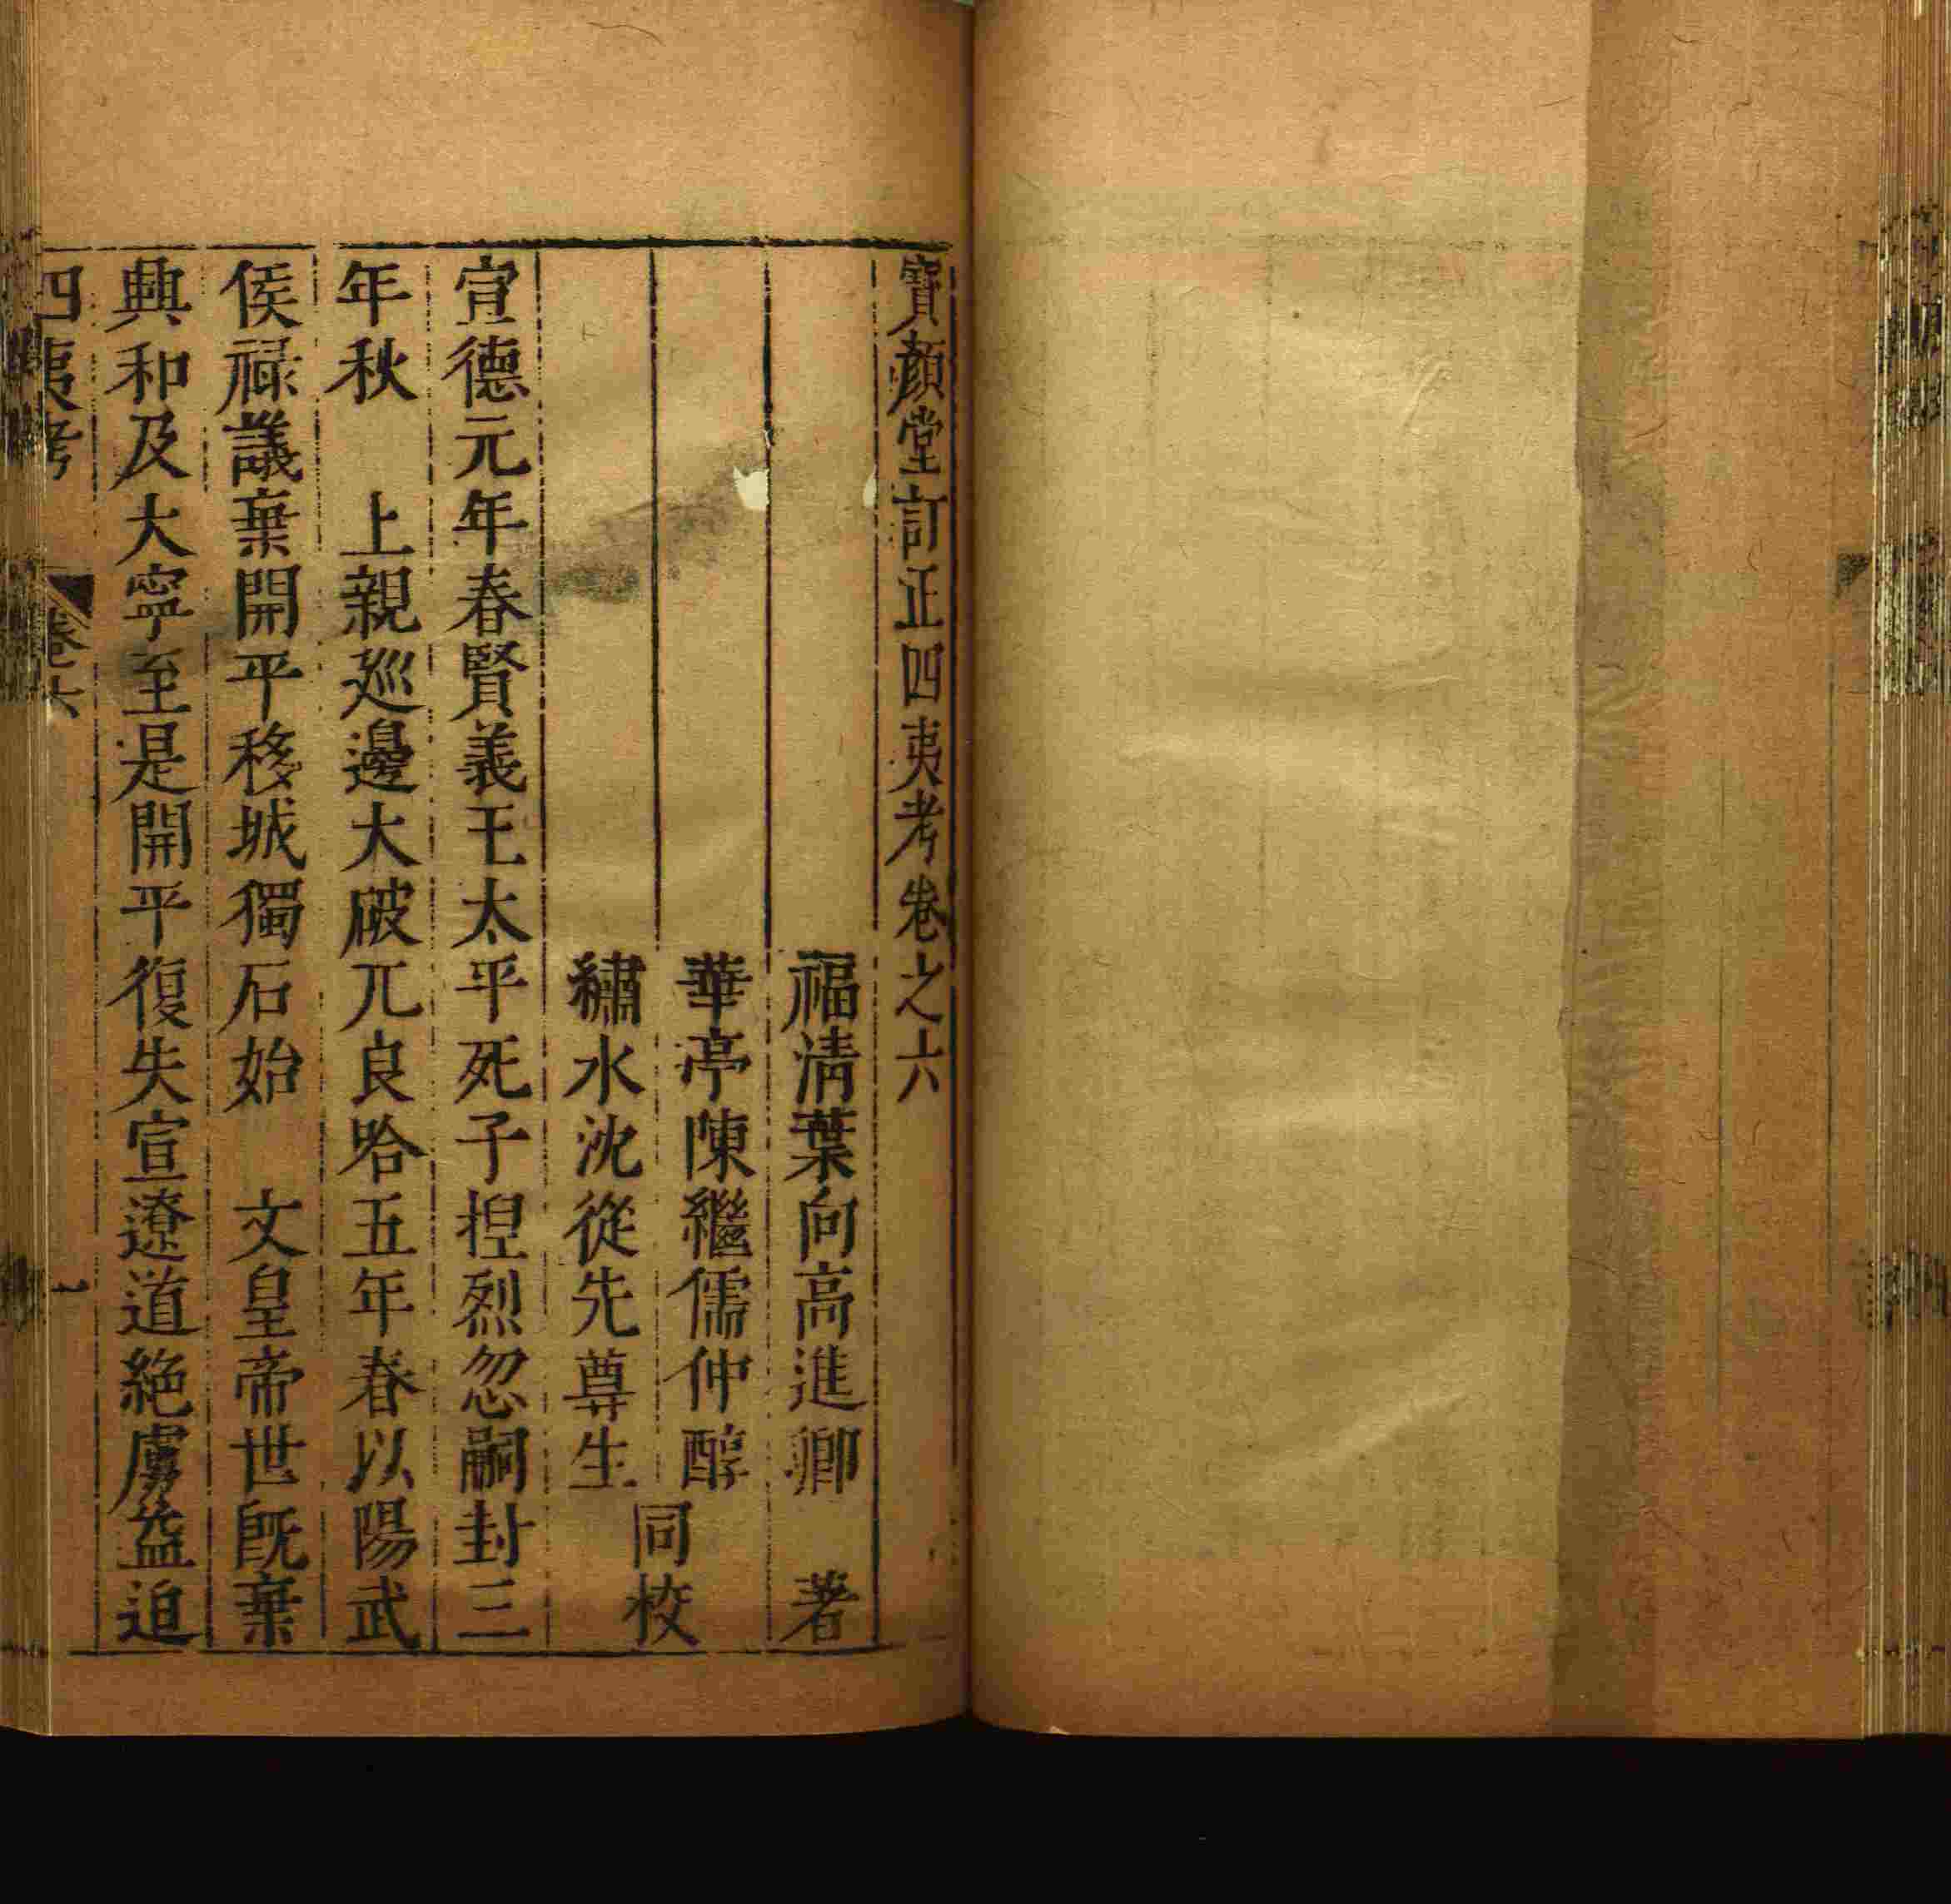 寶顏堂訂正四夷考卷之六
福淸葉向高進卿　著
華亭陳繼儒仲醇
繡水沈從先尊生
同校
宣德元年春賢義王太平死子揑烈忽嗣封三
年秋　上親廵邊大破兀良哈五年春以陽武
侯祿議棄開平移城獨石始　文皇帝世旣棄
興和及大寧至是開平復失宣遼道絶虜益迫
四夷考　卷六　一